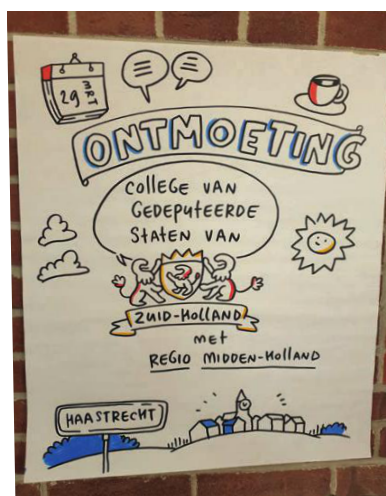 29 MRT
ONTMOETING
COLLEGE VAN
GEDEPUTEERDE
STATEN VAN
ZUID-HOLLAND
MET
REGIO MIDDEN-HOLLAND
HAASTRECHT